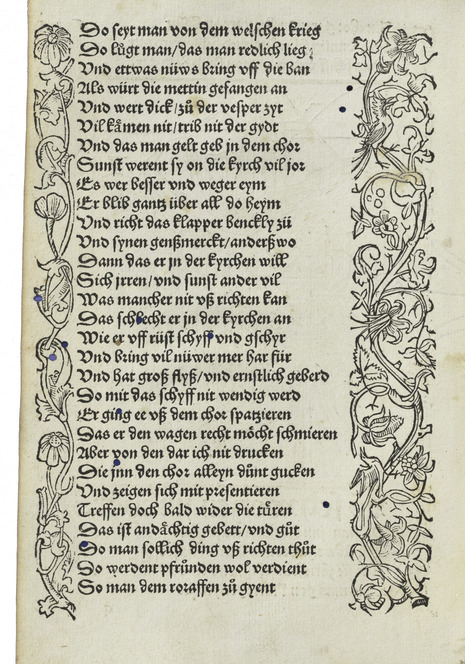 Do seyt man von dem welschen krieg
Do lůgt man/das man redlich lieg
Vnd ettwas nüws bring vff die ban
Als würt die mettin gefangen an
Vnd wert dick/zů der vesper zyt
Vil kåmen nit/trib nit der gydt
Vnd das man gelt geb jn dem chor
Sunst werent sy on die kyrch vil jor
Es wer besser vnd weger eym
Er blib gantz über all do heym
Vnd richt das klapper benckly zů
Vnd synen genßmerckt/anderßwo
Dann das er jn der kyrchen will
Sich jrren/vnd sunst ander vil
Was mancher nit vß richten kan
Das schlecht er jn der kyrchen an
Wie er vff rüst schyff vnd gschyr
Vnd bring vil nüwer mer har für
Vnd har groß flyß/vnd ernstlich geberd
Do mit das schyff nit wendig werd
Er ging ee vß dem chor spatzieren
Das er den wagen recht möcht schmieren
Aber von den dar ich nit drucken
Die jnn den chor alleyn důnt gucken
Vnd zeigen sich mit presentieren
Treffen doch bald wider die türen
Das ist andåchtig gebett/vnd gůt
So man sollich ding vß richten thůt
Do werdent pfründen wol verdient
So man dem roraffen zů gyent